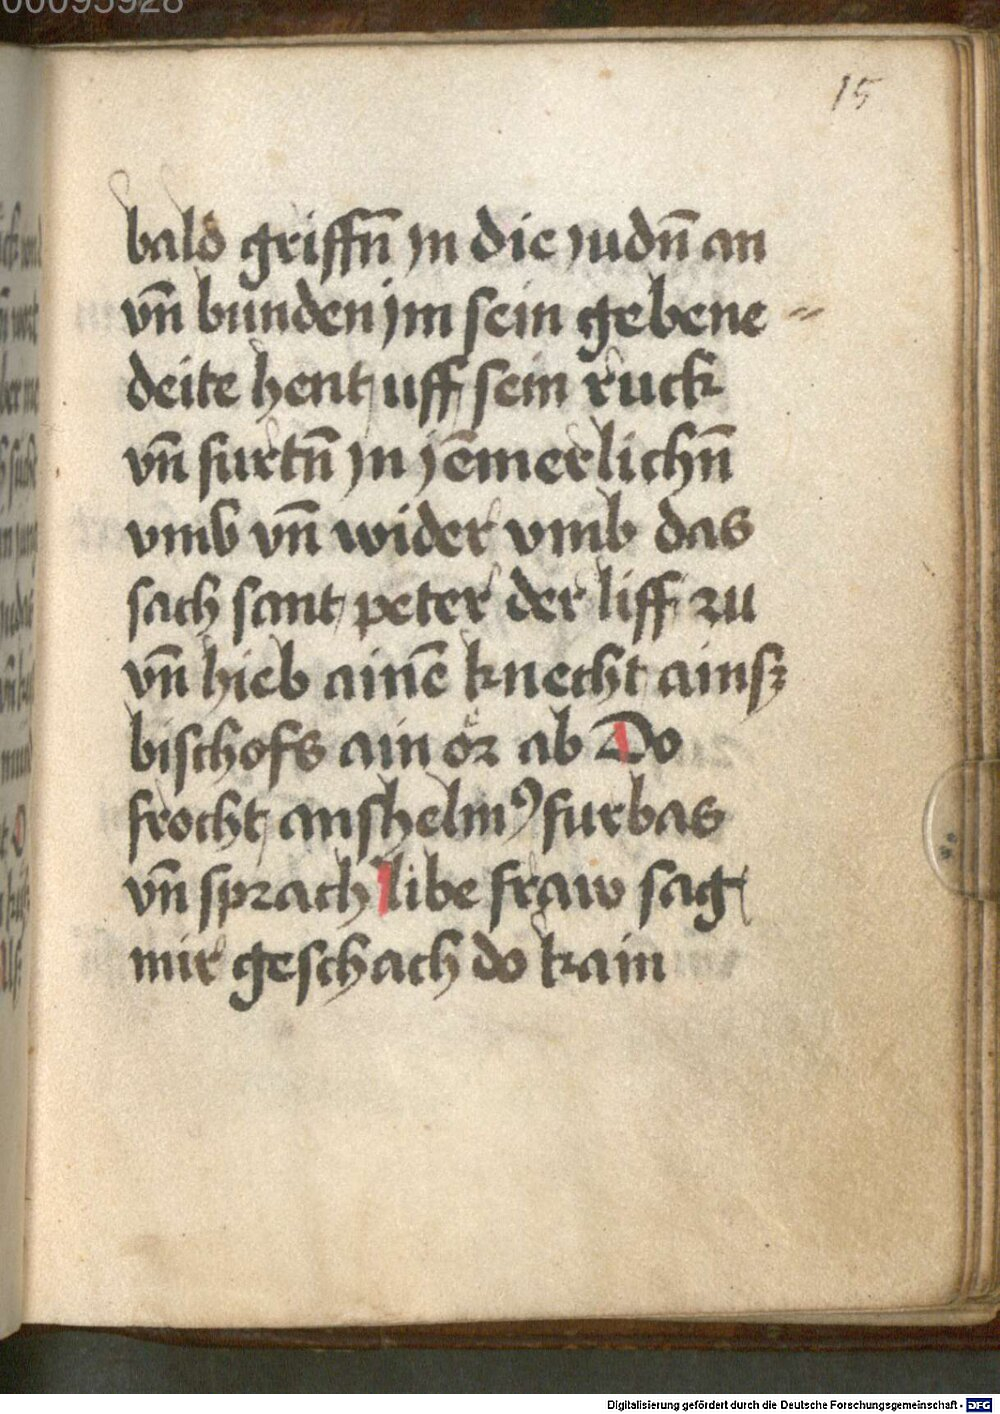 00095928
15
bald griffn̄ jn die judn̄ an
vn̄ bunden jm sein gebene=
deite hent uff sein ruck
vn̄ furtn̄ jn jēmerlichn̄
vmb vn̄ wider vmb das
sach sant peter der liff zu
vn̄ hieb ainē knecht ainsz
bischofs ain oͤr ab Do
frocht anshelmꝰ furbas
vn̄ sprach libe fraw sag
mir geschach do kain
Digitalisierung gefördert durch die Deutsche Forschungsgemeinschaft - DFG